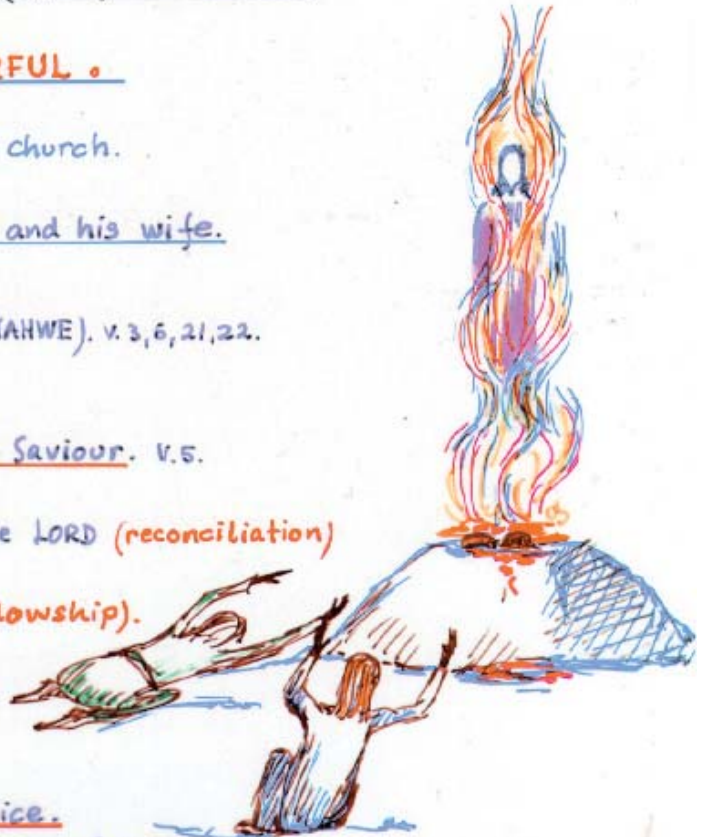 RFUL.
church.
and his wife.
AHWE). v. 3, 6, 21, 22.
Saviour. v. 5.
e LORD (reconciliation)
lowship).
ice.